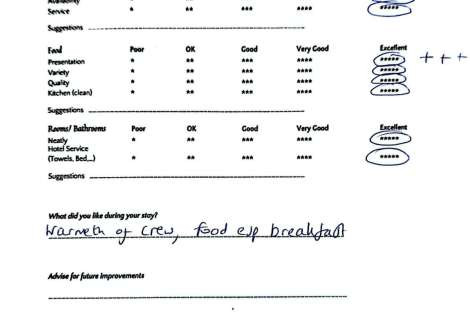 Service * ** *** **** *****
Suggestions
Food Poor OK Good Very Good Excellent
Presentation * ** *** **** ***** + + +
Variety * ** *** **** *****
Quality * ** *** **** *****
Kitchen (clean) * ** *** **** *****
Suggestions
Rooms/ Bathrooms Poor OK Good Very Good Excellent
Neatly * ** *** **** *****
Hotel Service
(Towels, Bed,..) * ** *** **** *****
Suggestions
What did you like during your stay?
Warmeth of crew, food esp breakfast
Advise for future improvements